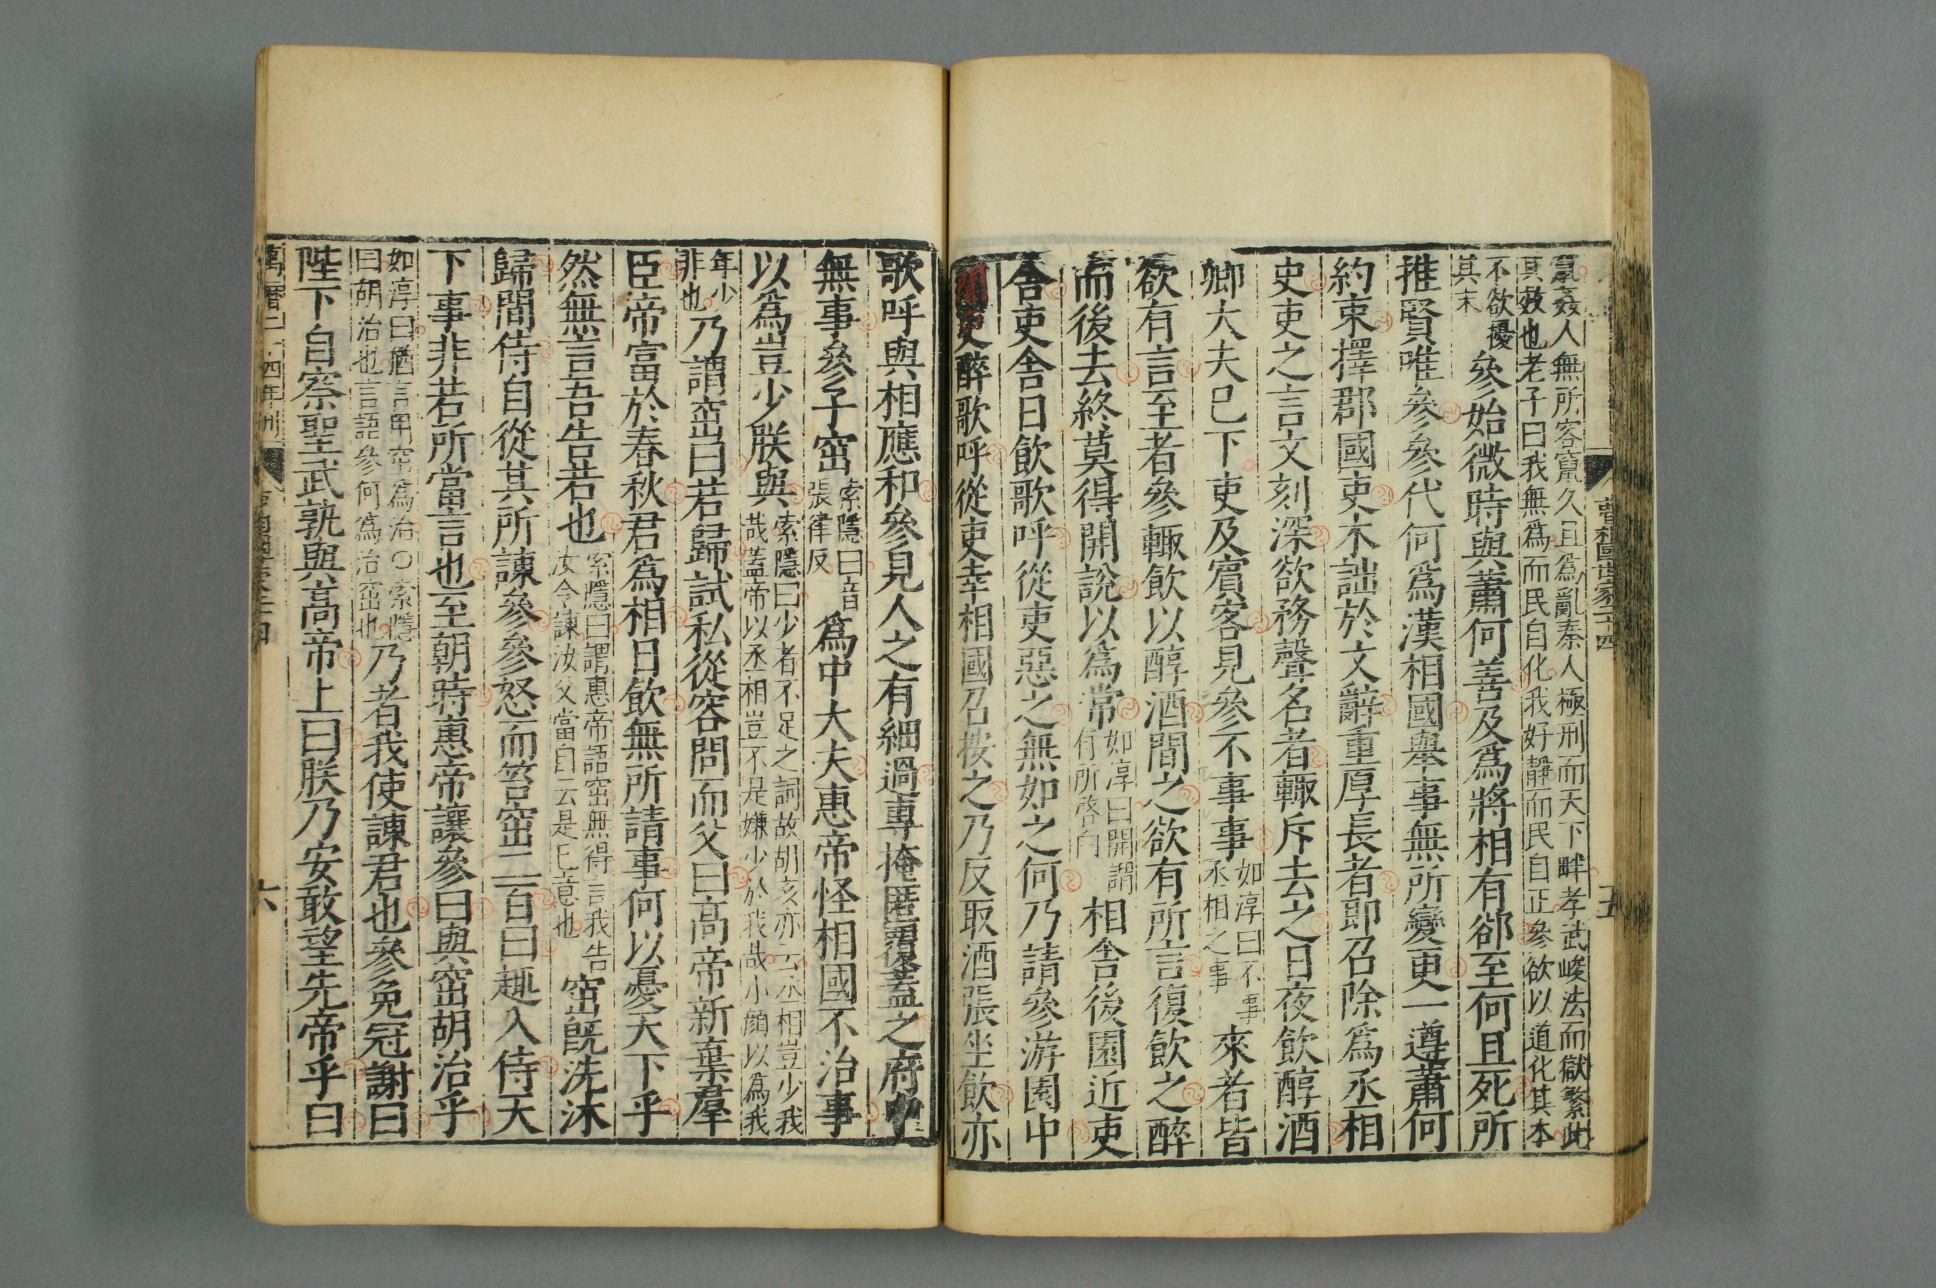 曹相國世家二十四
五
竄姦人無所容竄久且爲亂秦人極刑而天下畔孝武峻法而獄繁此
其效也老子曰我無爲而民自化我好靜而民自正參欲以道化其本
不欲擾
其末
參始微時與蕭何善及爲將相有郤至何且死所
推賢唯參參代何爲漢相國舉事無所變更一遵蕭何
約束擇郡國吏木詘於文辭重厚長者即召除爲丞相
史吏之言文刻深欲務聲名者輒斥去之日夜飲醇酒
卿大夫已下吏及賓客見參不事事
如淳曰不事
丞相之事
來者皆
欲有言至者參輒飲以醇酒間之欲有所言復飲之醉
而後去終莫得開說以爲常
如淳曰開謂
有所啓白
相舍後園近吏
舍吏舍日飲歌呼從吏惡之無如之何乃請參游園中
聞吏醉歌呼從吏幸相國召按之乃反取酒張坐飲亦
歌呼與相應和參見人之有細過專掩匿覆蓋之府中
無事參子窋
索隱曰音
張律反
爲中大夫惠帝怪相國不治事
以爲豈少朕與
索隱曰少者不足之詞故胡亥亦云丞相豈少我
哉蓋帝以丞相豈不是嫌少於我哉小顏以爲我
年少
非也
乃謂窋曰若歸試私從容問而父曰高帝新棄羣
臣帝富於春秋君爲相日飲無所請事何以憂天下乎
然無言吾告若也
索隱曰謂惠帝語窋無得言我告
汝令諫汝父當自云是己意也
窋旣洗沐
歸間侍自從其所諫參參怒而笞窋二百曰趣入侍天
下事非若所當言也至朝時惠帝讓參曰與窋胡治乎
如淳曰猶言用窋爲治○索隱
曰胡治也言語參何爲治窋也
乃者我使諫君也參免冠謝曰
陛下自察聖武孰與高帝上曰朕乃安敢望先帝乎曰
萬曆二十四年刊
六